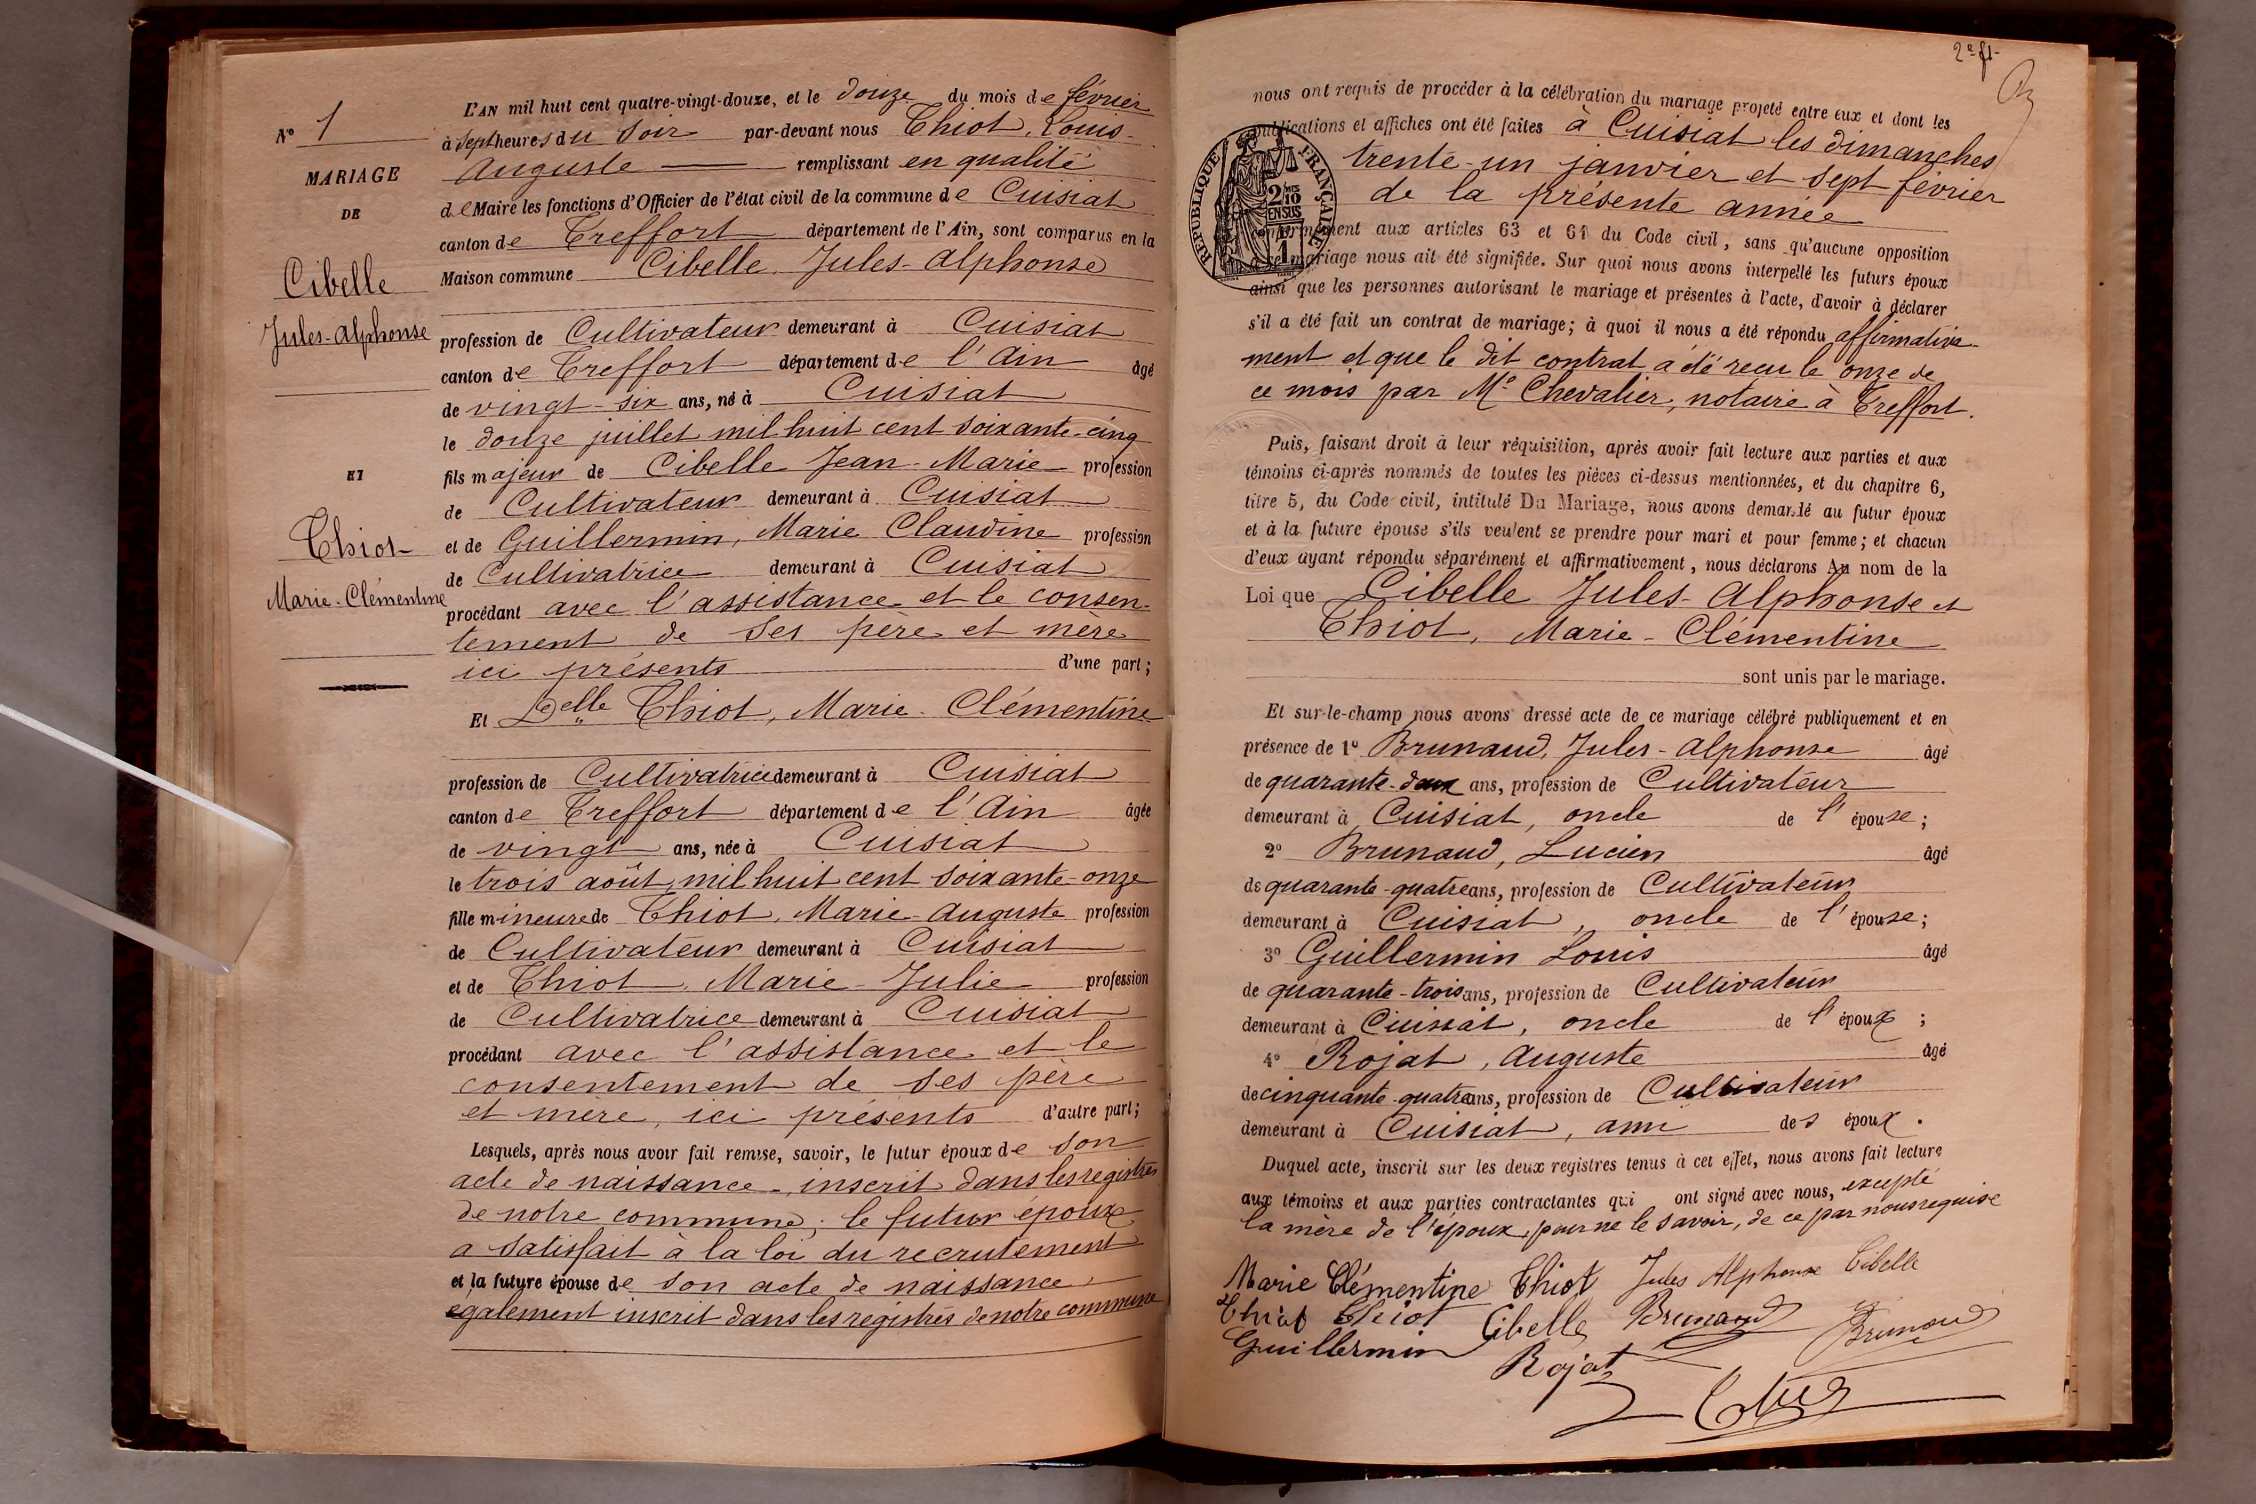 N° 1
MARIAGE
DE
Cibelle
Jules-Alphonse
ET
Thiot
Marie-Clémentine
L'AN mil huit cent quatre-vingt-douze, et le douze du mois de février
à sept heures du soir par-devant nous Thiot, Louis-
Auguste remplissant en qualité
de Maire les fonctions d'Officier de l'état civil de la commune de Cuisiat
canton de Treffort département de l'Ain, sont comparus en la
Maison commune Cibelle, Jules-Alphonse
profession de Cultivateur demeurant à Cuisiat
canton de Treffort département de l'Ain âgé
de vingt-six ans, né à Cuisiat
le douze juillet mil huit cent soixante-cinq
fils majeur de Cibelle Jean-Marie profession
de Cultivateur demeurant à Cuisiat
et de Guillermin, Marie Claudine profession
de Cultivatrice demeurant à Cuisiat
procédant avec l'assistance et le consen-
tement de ses père et mère
ici présents d'une part;
Et Delle Thiot, Marie-Clémentine
profession de Cultivatrice demeurant à Cuisiat
canton de Treffort département de l'Ain âgée
de vingt ans, née à Cuisiat
le trois août mil huit cent soixante-onze
fille mineure de Thiot, Marie-Auguste profession
de Cultivateur demeurant à Cuisiat
et de Thiot, Marie-Julie profession
de Cultivatrice demeurant à Cuisiat
procédant avec l'assistance et le
consentement de ses père
et mère, ici présents d'autre part;
Lesquels, après nous avoir fait remise, savoir, le futur époux de son
acte de naissance, inscrit dans les registres
de notre commune; le futur époux
a satisfait à la loi du recrutement
et la future épouse de son acte de naissance
également inscrit dans les registres de notre commune
2e ft
nous ont requis de procéder à la célébration du mariage projeté entre eux et dont les
publications et affiches ont été faites à Cuisiat les dimanches
trente-un janvier et sept février
de la présente année
conformément aux articles 63 et 64 du Code civil, sans qu'aucune opposition
à ce mariage nous ait été signifiée. Sur quoi nous avons interpellé les futurs époux
ainsi que les personnes autorisant le mariage et présentes à l'acte, d'avoir à déclarer
s'il a été fait un contrat de mariage; à quoi il nous a été répondu affirmative-
ment et que le dit contrat a été reçu le onze de
ce mois par Me Chevalier, notaire à Treffort.
RÉPUBLIQUE FRANÇAISE
2/10 EN SUS
1
Puis, faisant droit à leur réquisition, après avoir fait lecture aux parties et aux
témoins ci-après nommés de toutes les pièces ci-dessus mentionnées, et du chapitre 6,
titre 5, du Code civil, intitulé Du Mariage, nous avons demandé au futur époux
et à la future épouse s'ils veulent se prendre pour mari et pour femme; et chacun
d'eux ayant répondu séparément et affirmativement, nous déclarons Au nom de la
Loi que Cibelle Jules-Alphonse et
Thiot, Marie-Clémentine
sont unis par le mariage.
Et sur-le-champ nous avons dressé acte de ce mariage célébré publiquement et en
présence de 1° Brunaud, Jules-Alphonse âgé
de quarante-deux ans, profession de Cultivateur
demeurant à Cuisiat, oncle de l'épouse;
2° Brunaud, Lucien âgé
de quarante-quatre ans, profession de Cultivateur
demeurant à Cuisiat, oncle de l'épouse;
3° Guillermin Louis âgé
de quarante-trois ans, profession de Cultivateur
demeurant à Cuisiat, oncle de l'époux;
4° Rojat, Auguste âgé
de cinquante-quatre ans, profession de Cultivateur
demeurant à Cuisiat, ami des époux.
Duquel acte, inscrit sur les deux registres tenus à cet effet, nous avons fait lecture
aux témoins et aux parties contractantes qui ont signé avec nous, excepté
la mère de l'époux, pour ne le savoir, de ce par nous requise
Marie Clémentine Thiot Jules Alphonse Cibelle
Thiot Thiot Cibelle Brunaud Brunaud
Guillermin Rojat